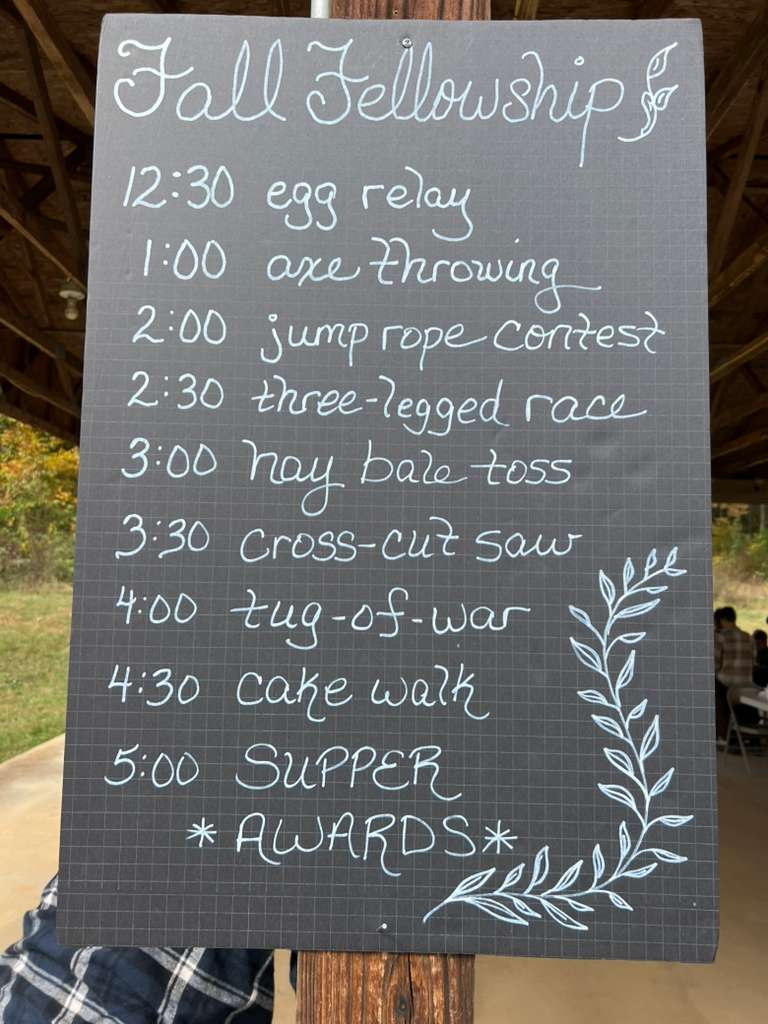 Fall Fellowship
12:30 egg relay
1:00 axe throwing
2:00 jump rope contest
2:30 three-legged race
3:00 hay bale toss
3:30 cross-cut saw
4:00 tug-of-war
4:30 cake walk
5:00 SUPPER
* AWARDS *